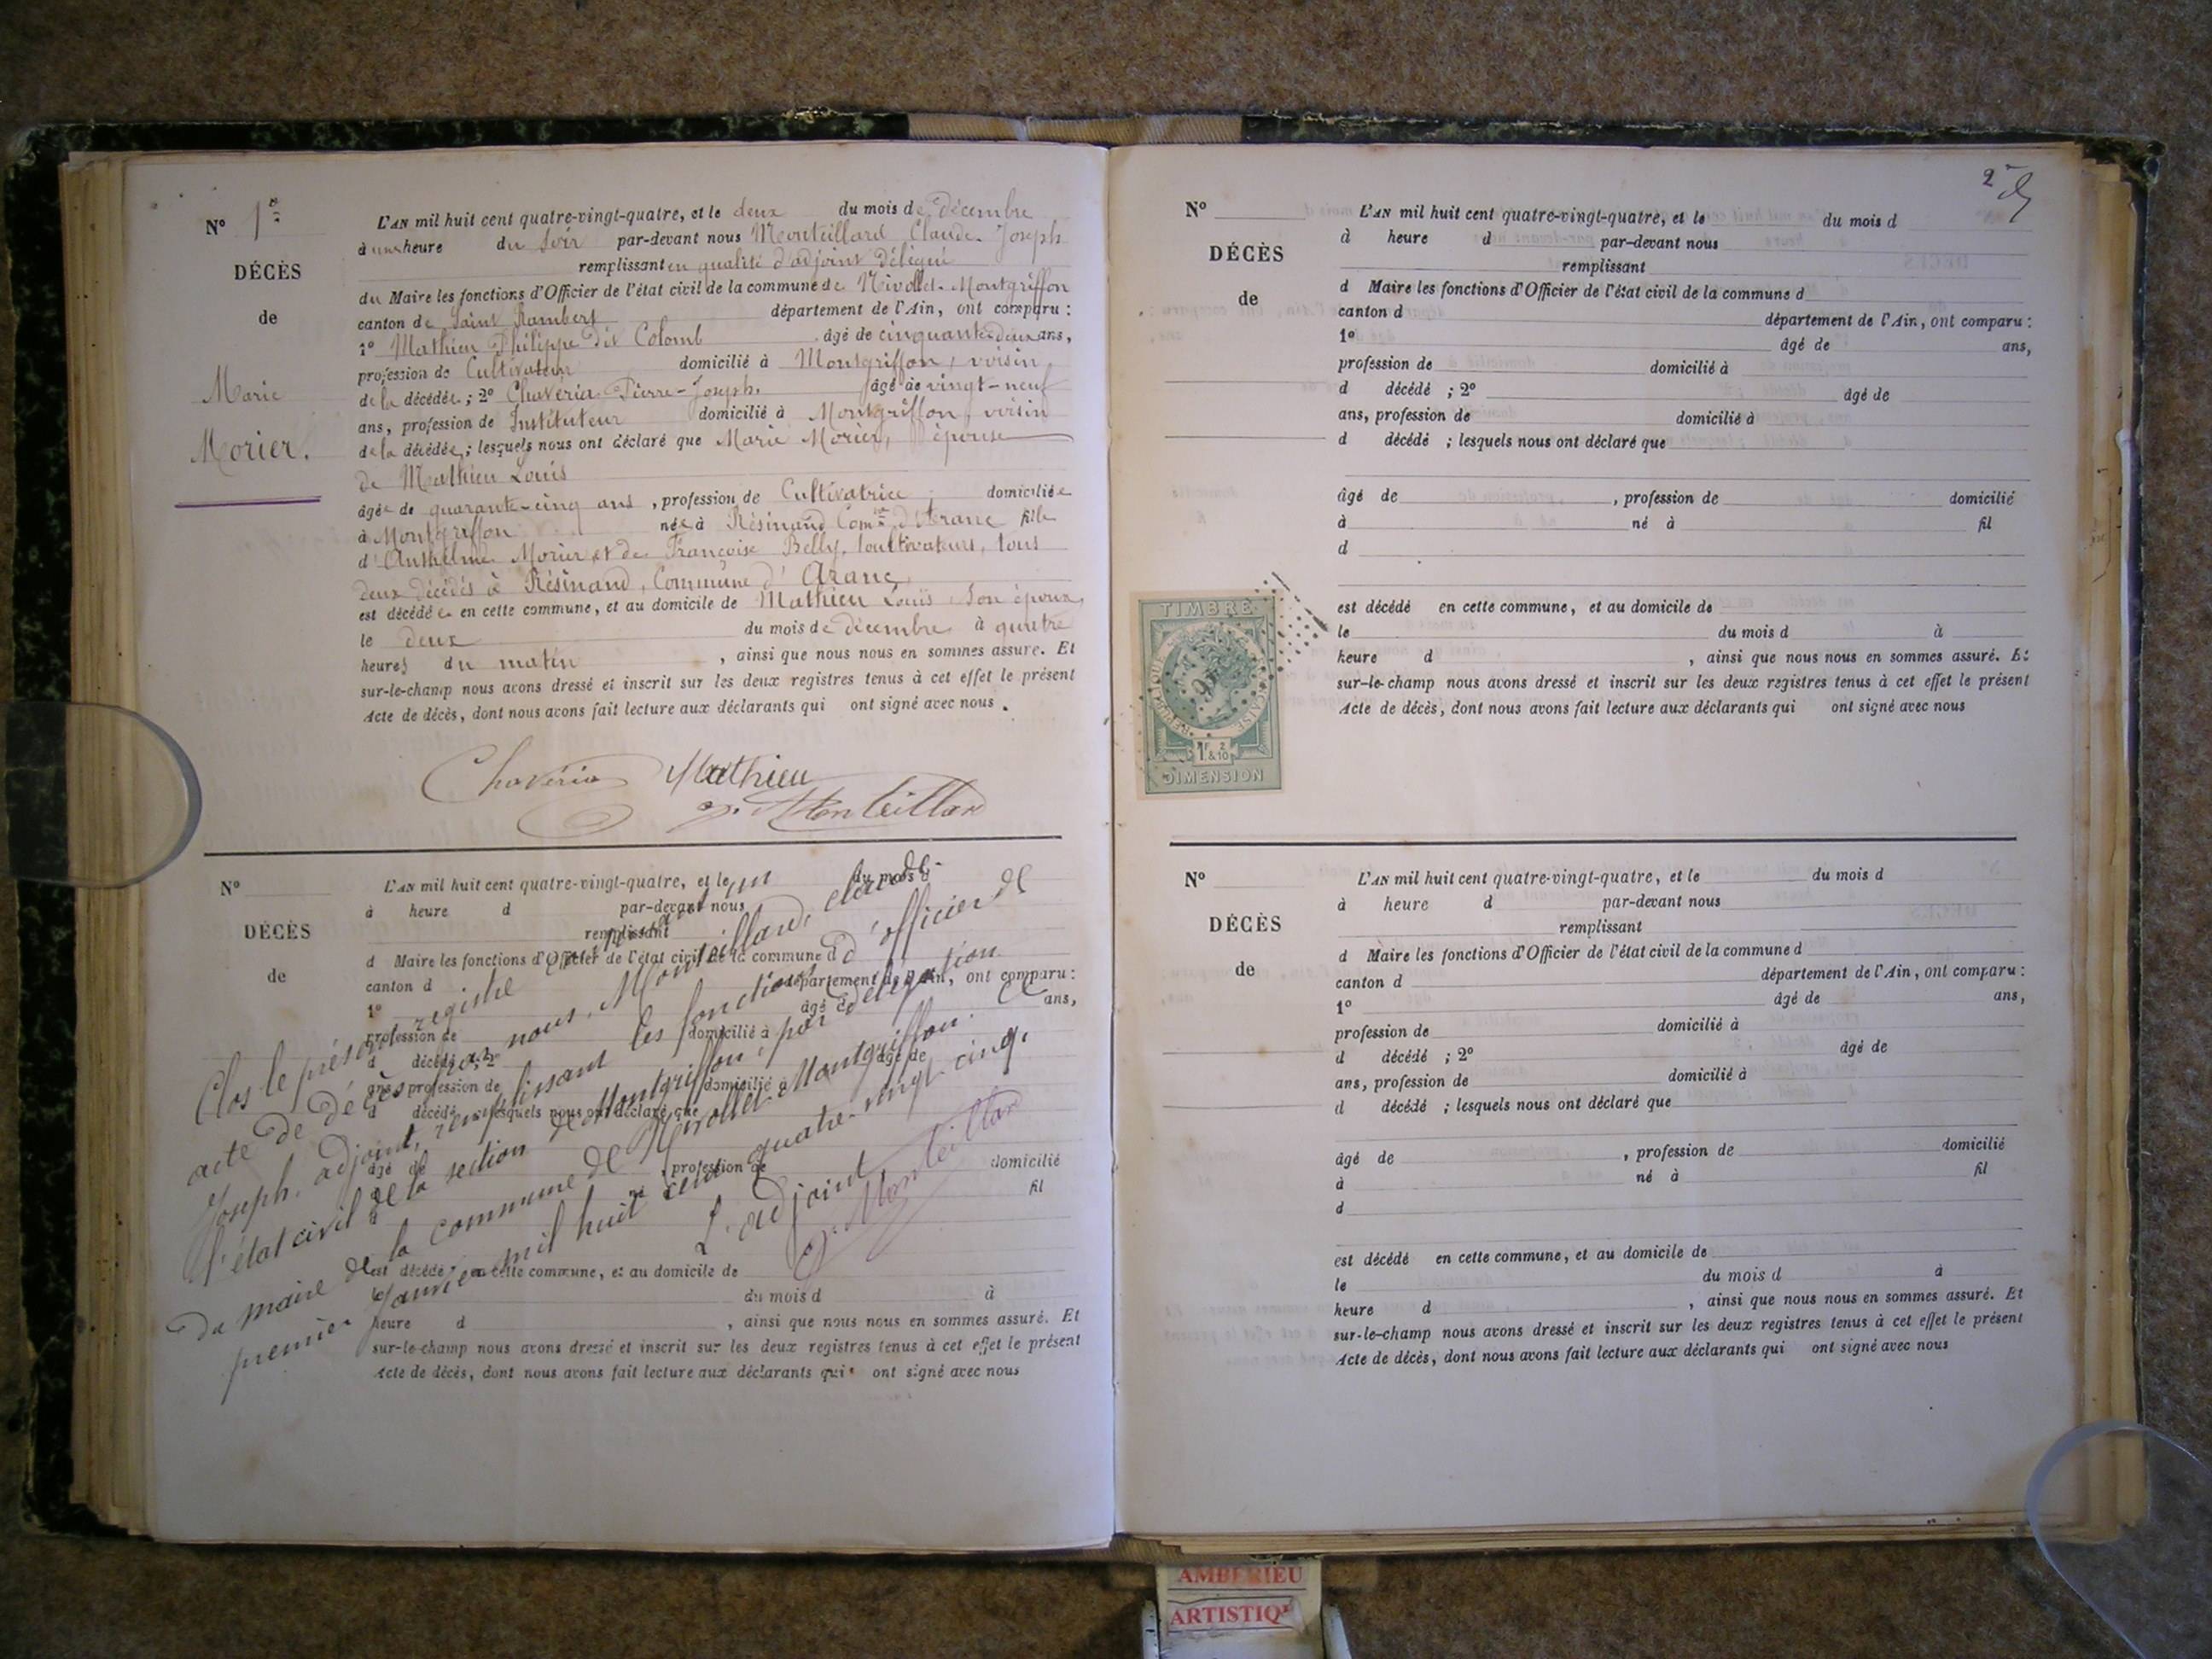 N° 1er
DÉCÈS
de
Marie
Morier.
L'AN mil huit cent quatre-vingt-quatre, et le deux du mois de décembre
à une heure du soir par-devant nous Monteillard Claude-Joseph
remplissant en qualité d'adjoint délégué
du Maire les fonctions d'Officier de l'état civil de la commune de Nivollet-Montgriffon
canton de Saint Rambert département de l'Ain, ont comparu :
1° Mathieu Philippe dit Colomb âgé de cinquante-deux ans,
profession de Cultivateur domicilié à Montgriffon, voisin
de la décédée ; 2° Chavéria Pierre-Joseph, âgé de vingt-neuf
ans, profession de Instituteur domicilié à Montgriffon, voisin
de la décédée ; lesquels nous ont déclaré que Marie Morier, épouse
de Mathieu Louis
âgée de quarante-cinq ans, profession de Cultivatrice domiciliée
à Montgriffon née à Résinand Comne d'Aranc fille
d'Anthelme Morier et de Françoise Belly, cultivateurs, tous
deux décédés à Résinand, Commune d'Aranc,
est décédée en cette commune, et au domicile de Mathieu Louis, son époux,
le deux du mois de décembre à quatre
heures du matin , ainsi que nous nous en sommes assuré. Et
sur-le-champ nous avons dressé et inscrit sur les deux registres tenus à cet effet le présent
Acte de décès, dont nous avons fait lecture aux déclarants qui ont signé avec nous.
Chavéria Mathieu
J. Monteillard
N°
DÉCÈS
de
L'AN mil huit cent quatre-vingt-quatre, et le du mois d
à heure d par-devant nous
remplissant
d Maire les fonctions d'Officier de l'état civil de la commune d
canton d département de l'Ain, ont comparu :
1° âgé de ans,
profession de domicilié à
d décédé ; 2° âgé de
ans, profession de domicilié à
d décédé ; lesquels nous ont déclaré que
âgé de , profession de domicilié
à né à fil
d
est décédé en cette commune, et au domicile de
le du mois d à
heure d , ainsi que nous nous en sommes assuré. Et
sur-le-champ nous avons dressé et inscrit sur les deux registres tenus à cet effet le présent
Acte de décès, dont nous avons fait lecture aux déclarants qui ont signé avec nous
Clos le présent registre
acte de décès par nous, Monteillard, Claude-
Joseph, adjoint, remplissant les fonctions d'officier de
l'état civil de la section de Montgriffon, par délégation
du maire de la commune de Nivollet-Montgriffon. Le
premier Janvier mil huit cent quatre-vingt-cinq.
L'adjoint
J. Monteillard
2e
N°
DÉCÈS
de
L'AN mil huit cent quatre-vingt-quatre, et le du mois d
à heure d par-devant nous
remplissant
d Maire les fonctions d'Officier de l'état civil de la commune d
canton d département de l'Ain, ont comparu :
1° âgé de ans,
profession de domicilié à
d décédé ; 2° âgé de
ans, profession de domicilié à
d décédé ; lesquels nous ont déclaré que
âgé de , profession de domicilié
à né à fil
d
est décédé en cette commune, et au domicile de
le du mois d à
heure d , ainsi que nous nous en sommes assuré. Et
sur-le-champ nous avons dressé et inscrit sur les deux registres tenus à cet effet le présent
Acte de décès, dont nous avons fait lecture aux déclarants qui ont signé avec nous
TIMBRE
REPUBLIQUE FRANÇAISE
1F & 2/10
DIMENSION
N°
DÉCÈS
de
L'AN mil huit cent quatre-vingt-quatre, et le du mois d
à heure d par-devant nous
remplissant
d Maire les fonctions d'Officier de l'état civil de la commune d
canton d département de l'Ain, ont comparu :
1° âgé de ans,
profession de domicilié à
d décédé ; 2° âgé de
ans, profession de domicilié à
d décédé ; lesquels nous ont déclaré que
âgé de , profession de domicilié
à né à fil
d
est décédé en cette commune, et au domicile de
le du mois d à
heure d , ainsi que nous nous en sommes assuré. Et
sur-le-champ nous avons dressé et inscrit sur les deux registres tenus à cet effet le présent
Acte de décès, dont nous avons fait lecture aux déclarants qui ont signé avec nous
AMBERIEU
ARTISTIQUE